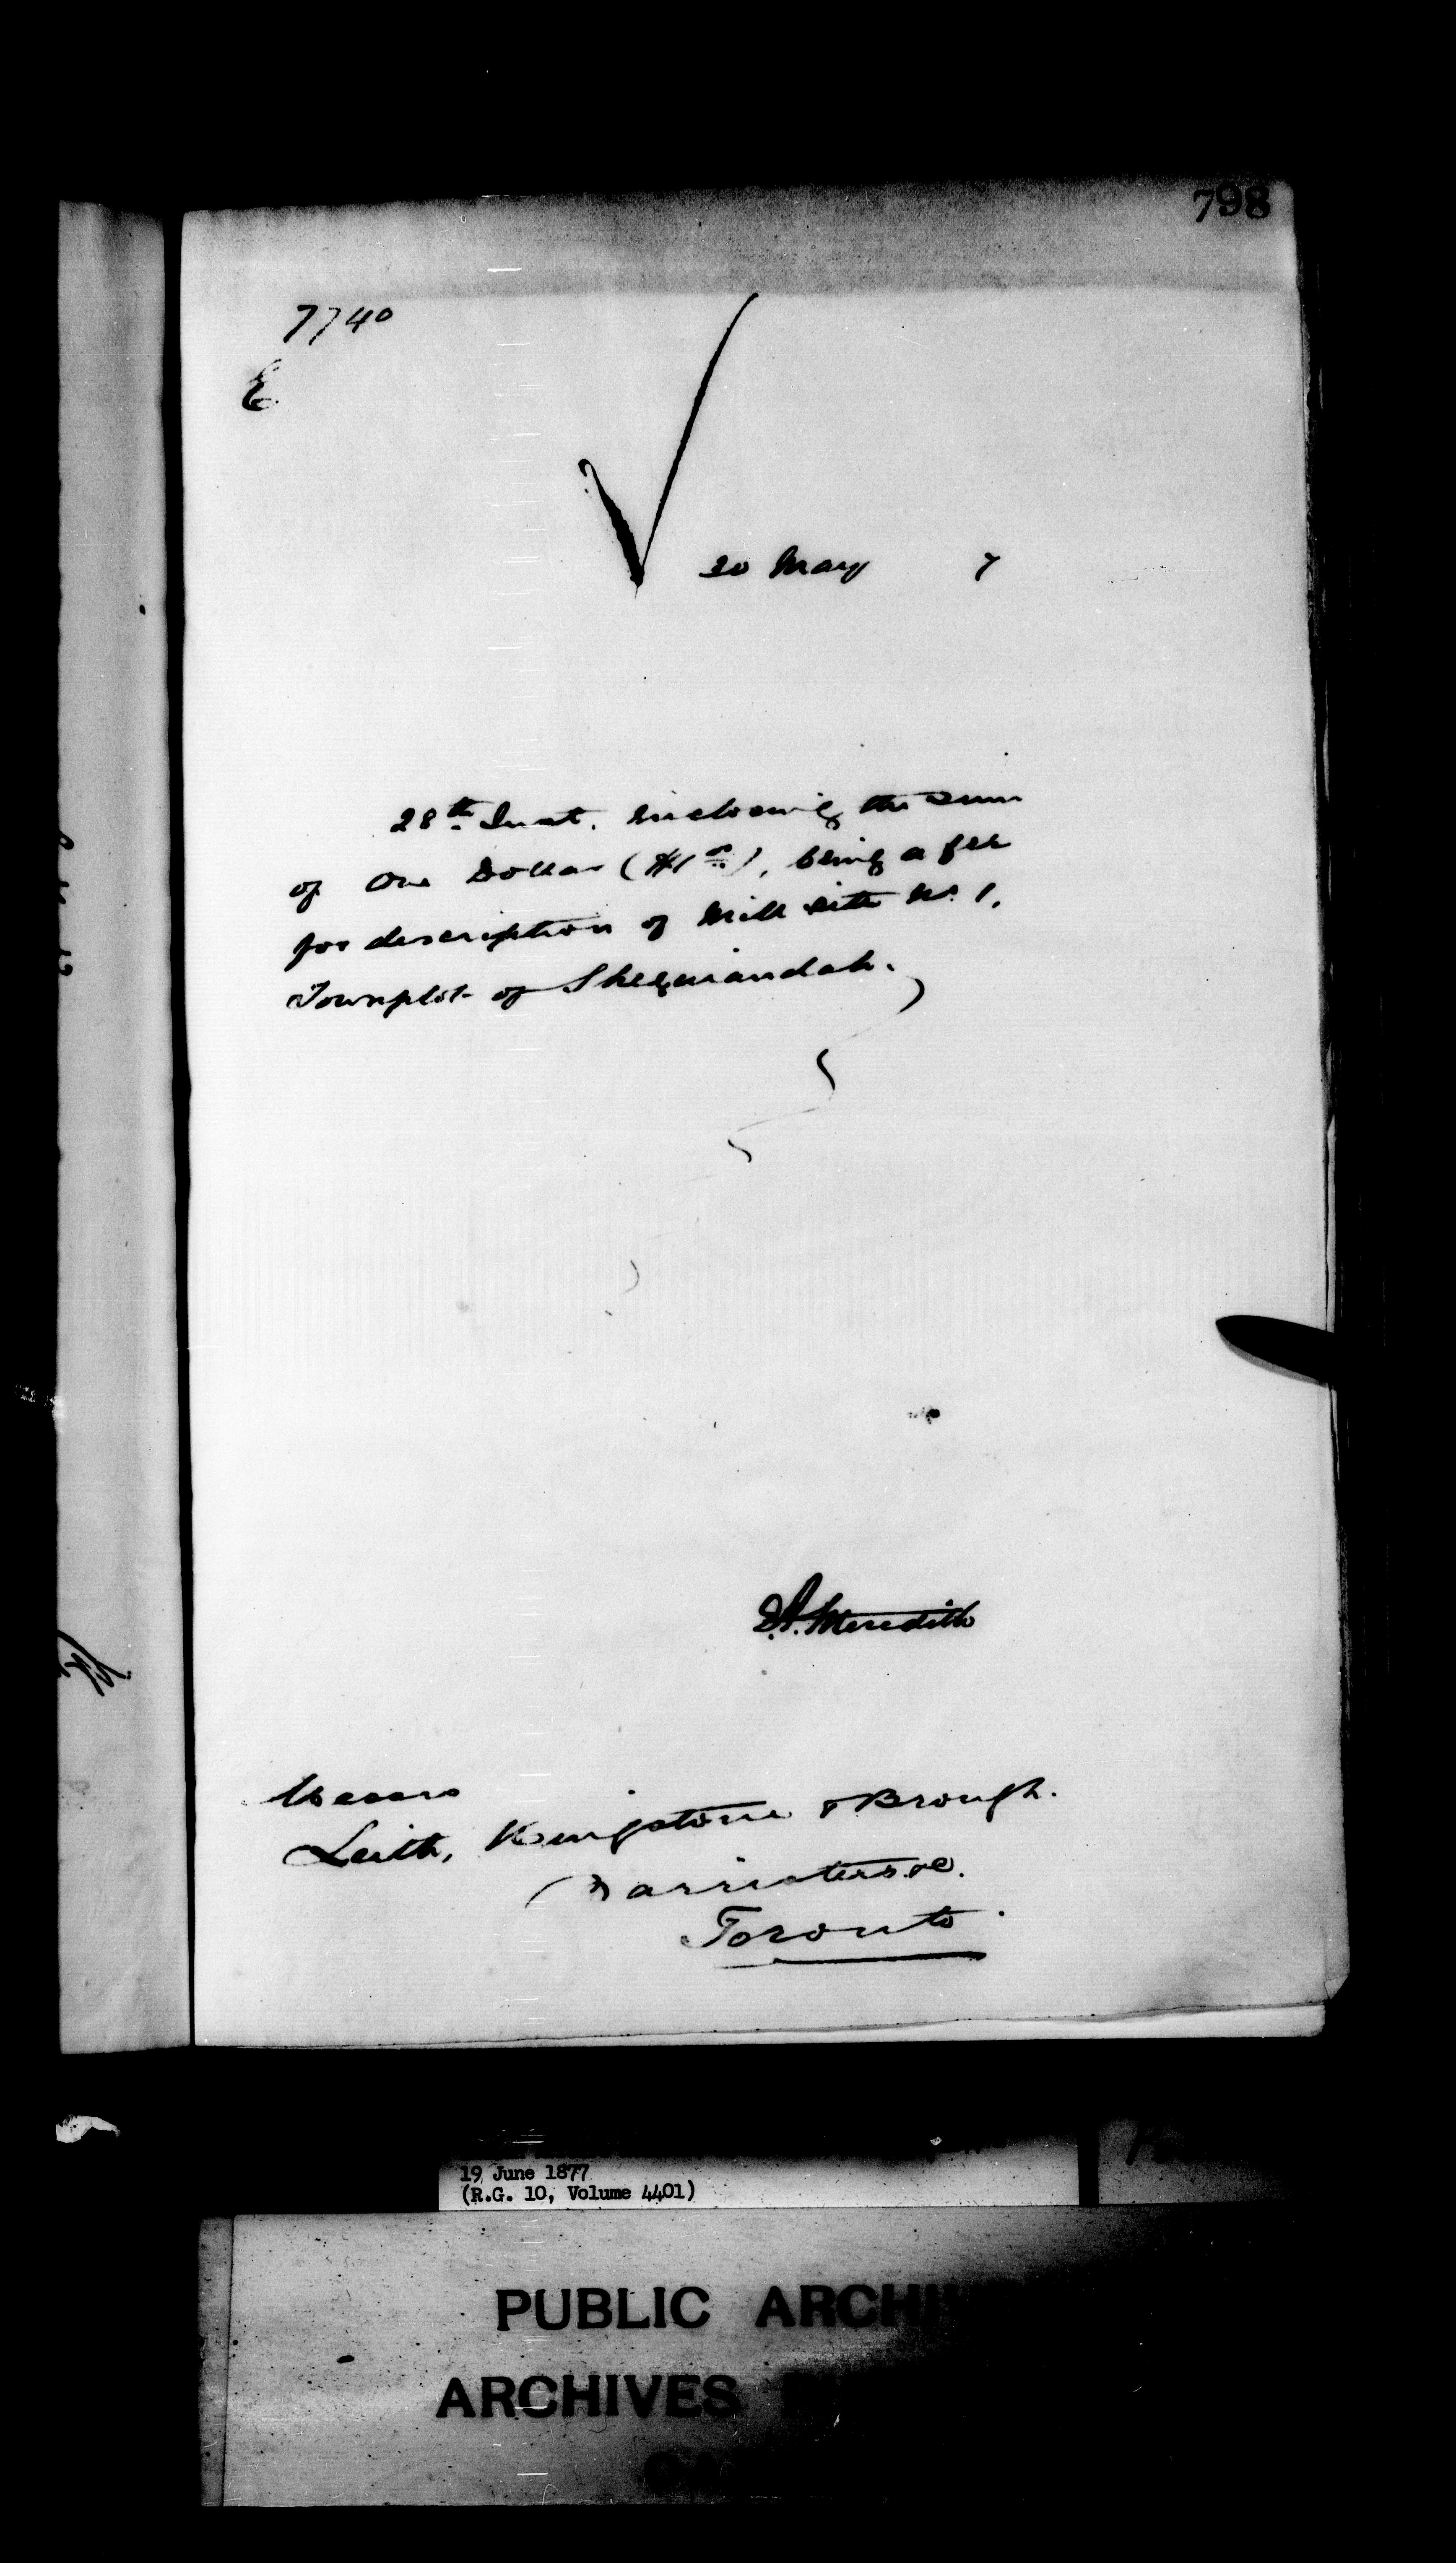 798
7740
E
30 May 7
28th Inst. inclosing the sum
of One Dollar ($1.00), being a fee
for description of Mill site No. 1,
Townplot of Sheguiandah.
E.A. Meredith
Messrs
Leith, Kingstone & Brough.
Barristers &c.
Toronto.
19 June 1877
(R.G. 10, Volume 4401)
PUBLIC ARCHIV
ARCHIVES